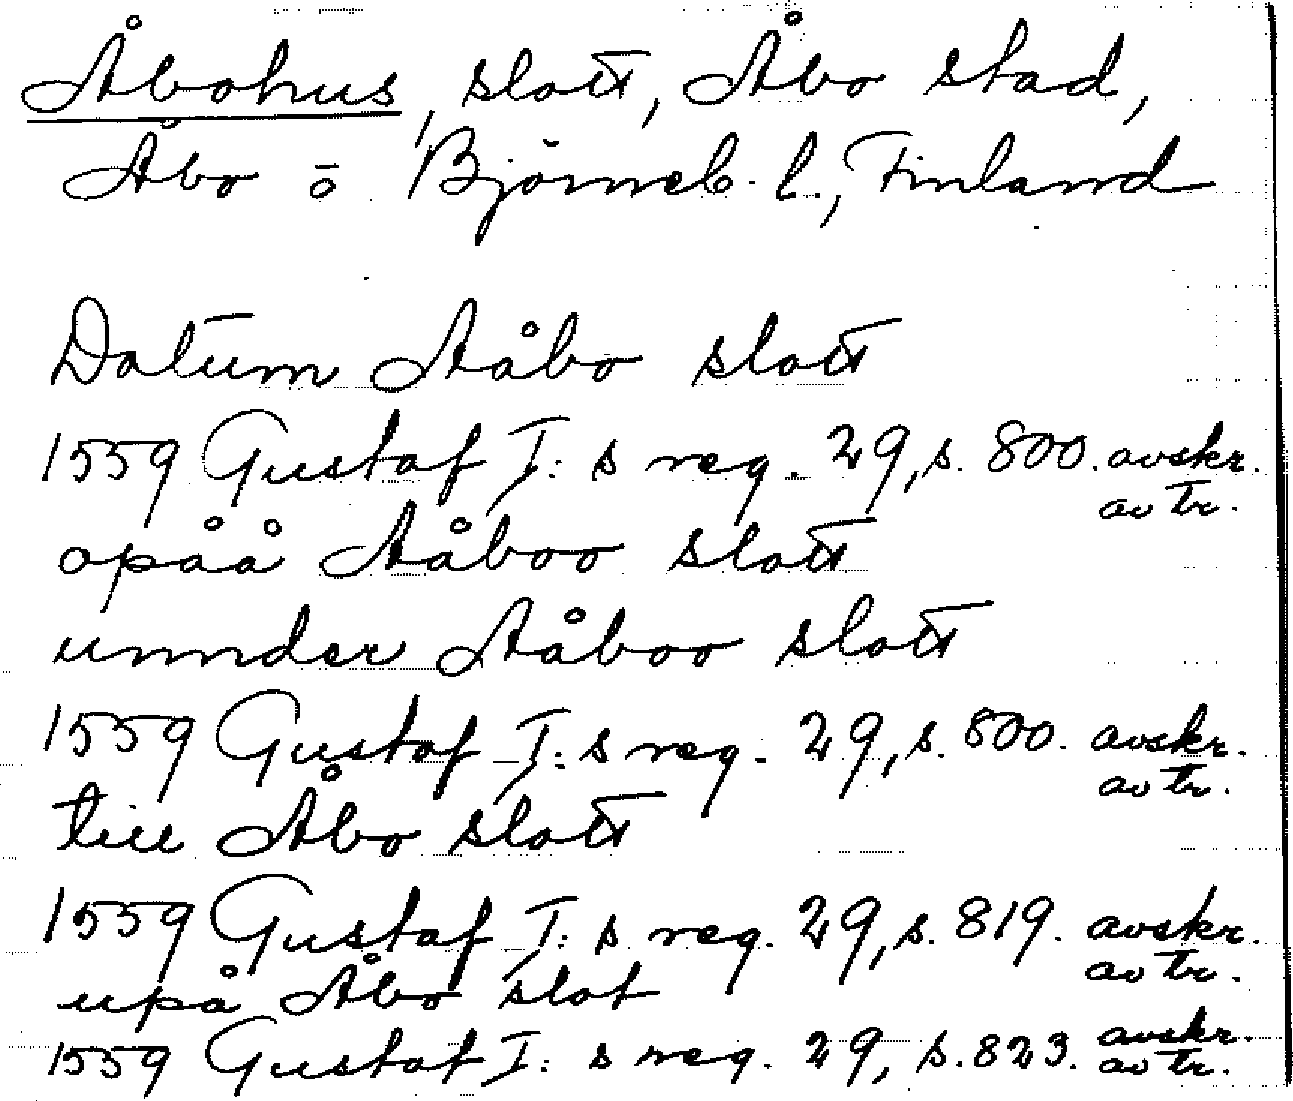 Åbohus, slott, Åbo stad,
Åbo o Björneb. l., Finland
Datum Aåbo slott
1559 Gustaf I: s reg. 29, s. 800. avskr.
av tr.
opåå Aåboo slott
unnder Aåboo slott
1559 Gustaf I: s reg. 29, s. 800. avskr.
av tr.
till Åbo slott
1559 Gustaf I: s reg. 29, s. 819. avskr.
av tr.
upå Åbo slot
1559 Gustaf I: s reg. 29, s. 823. avskr.
av tr.